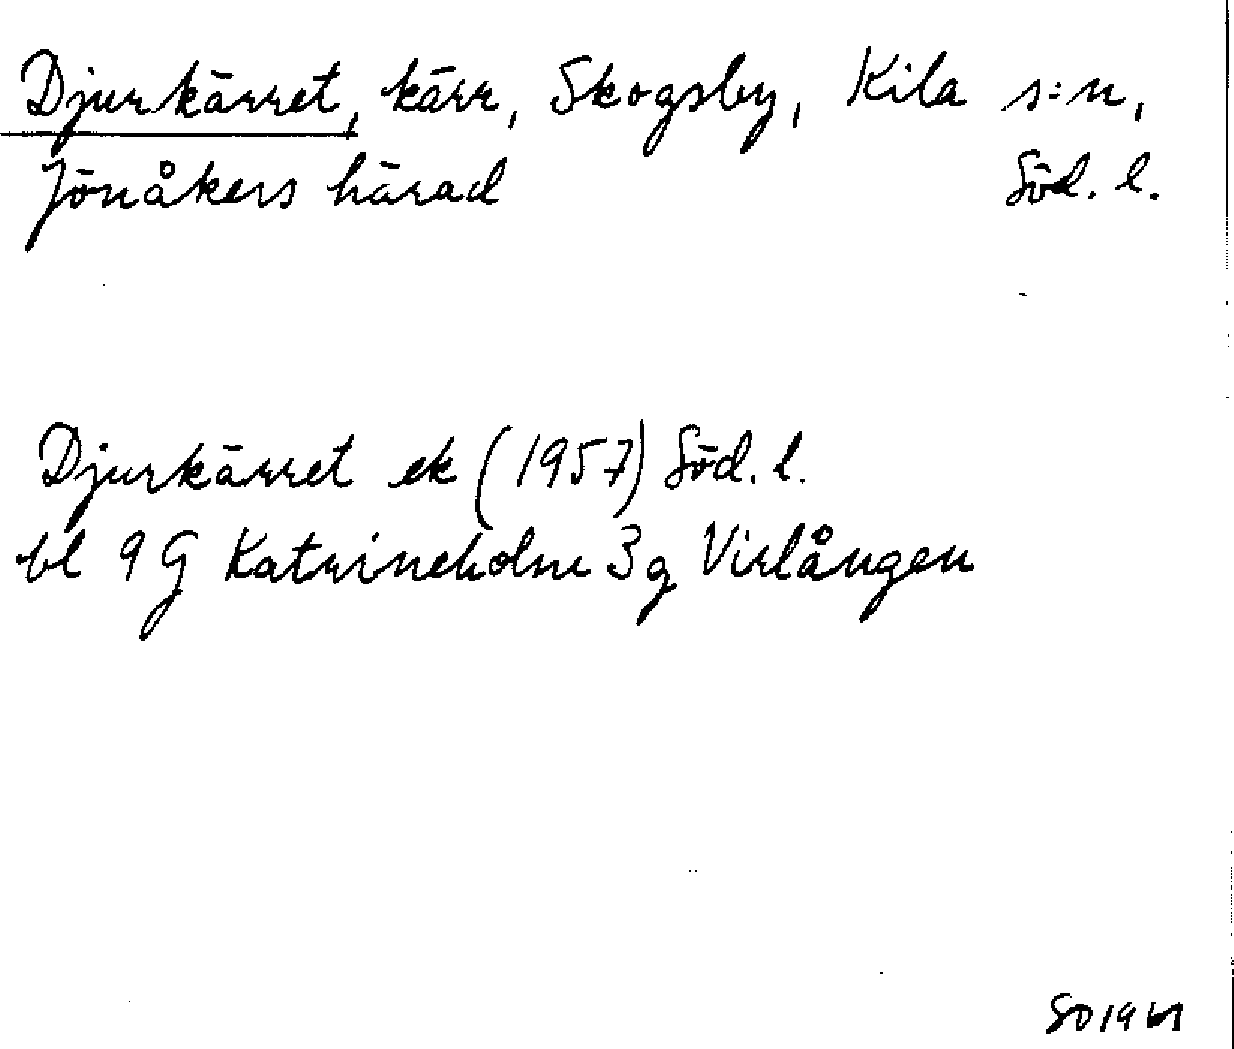 Djurkärret, kärr, Skogsby, Kila s:n,
Jönåkers härad Söd. l.
Djurkärret ek (1957) Söd. l.
bl 9 G Katrineholm 3g Virlången